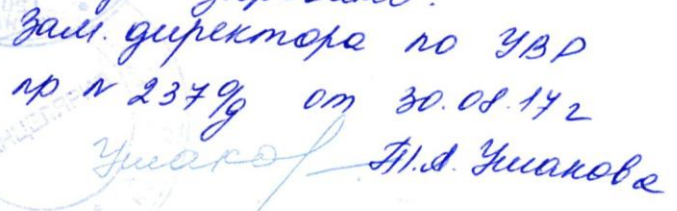 Зам. директора по УВР
пр. N 237 о/д от 30.08.17г
Ушаков Т.А. Ушакова